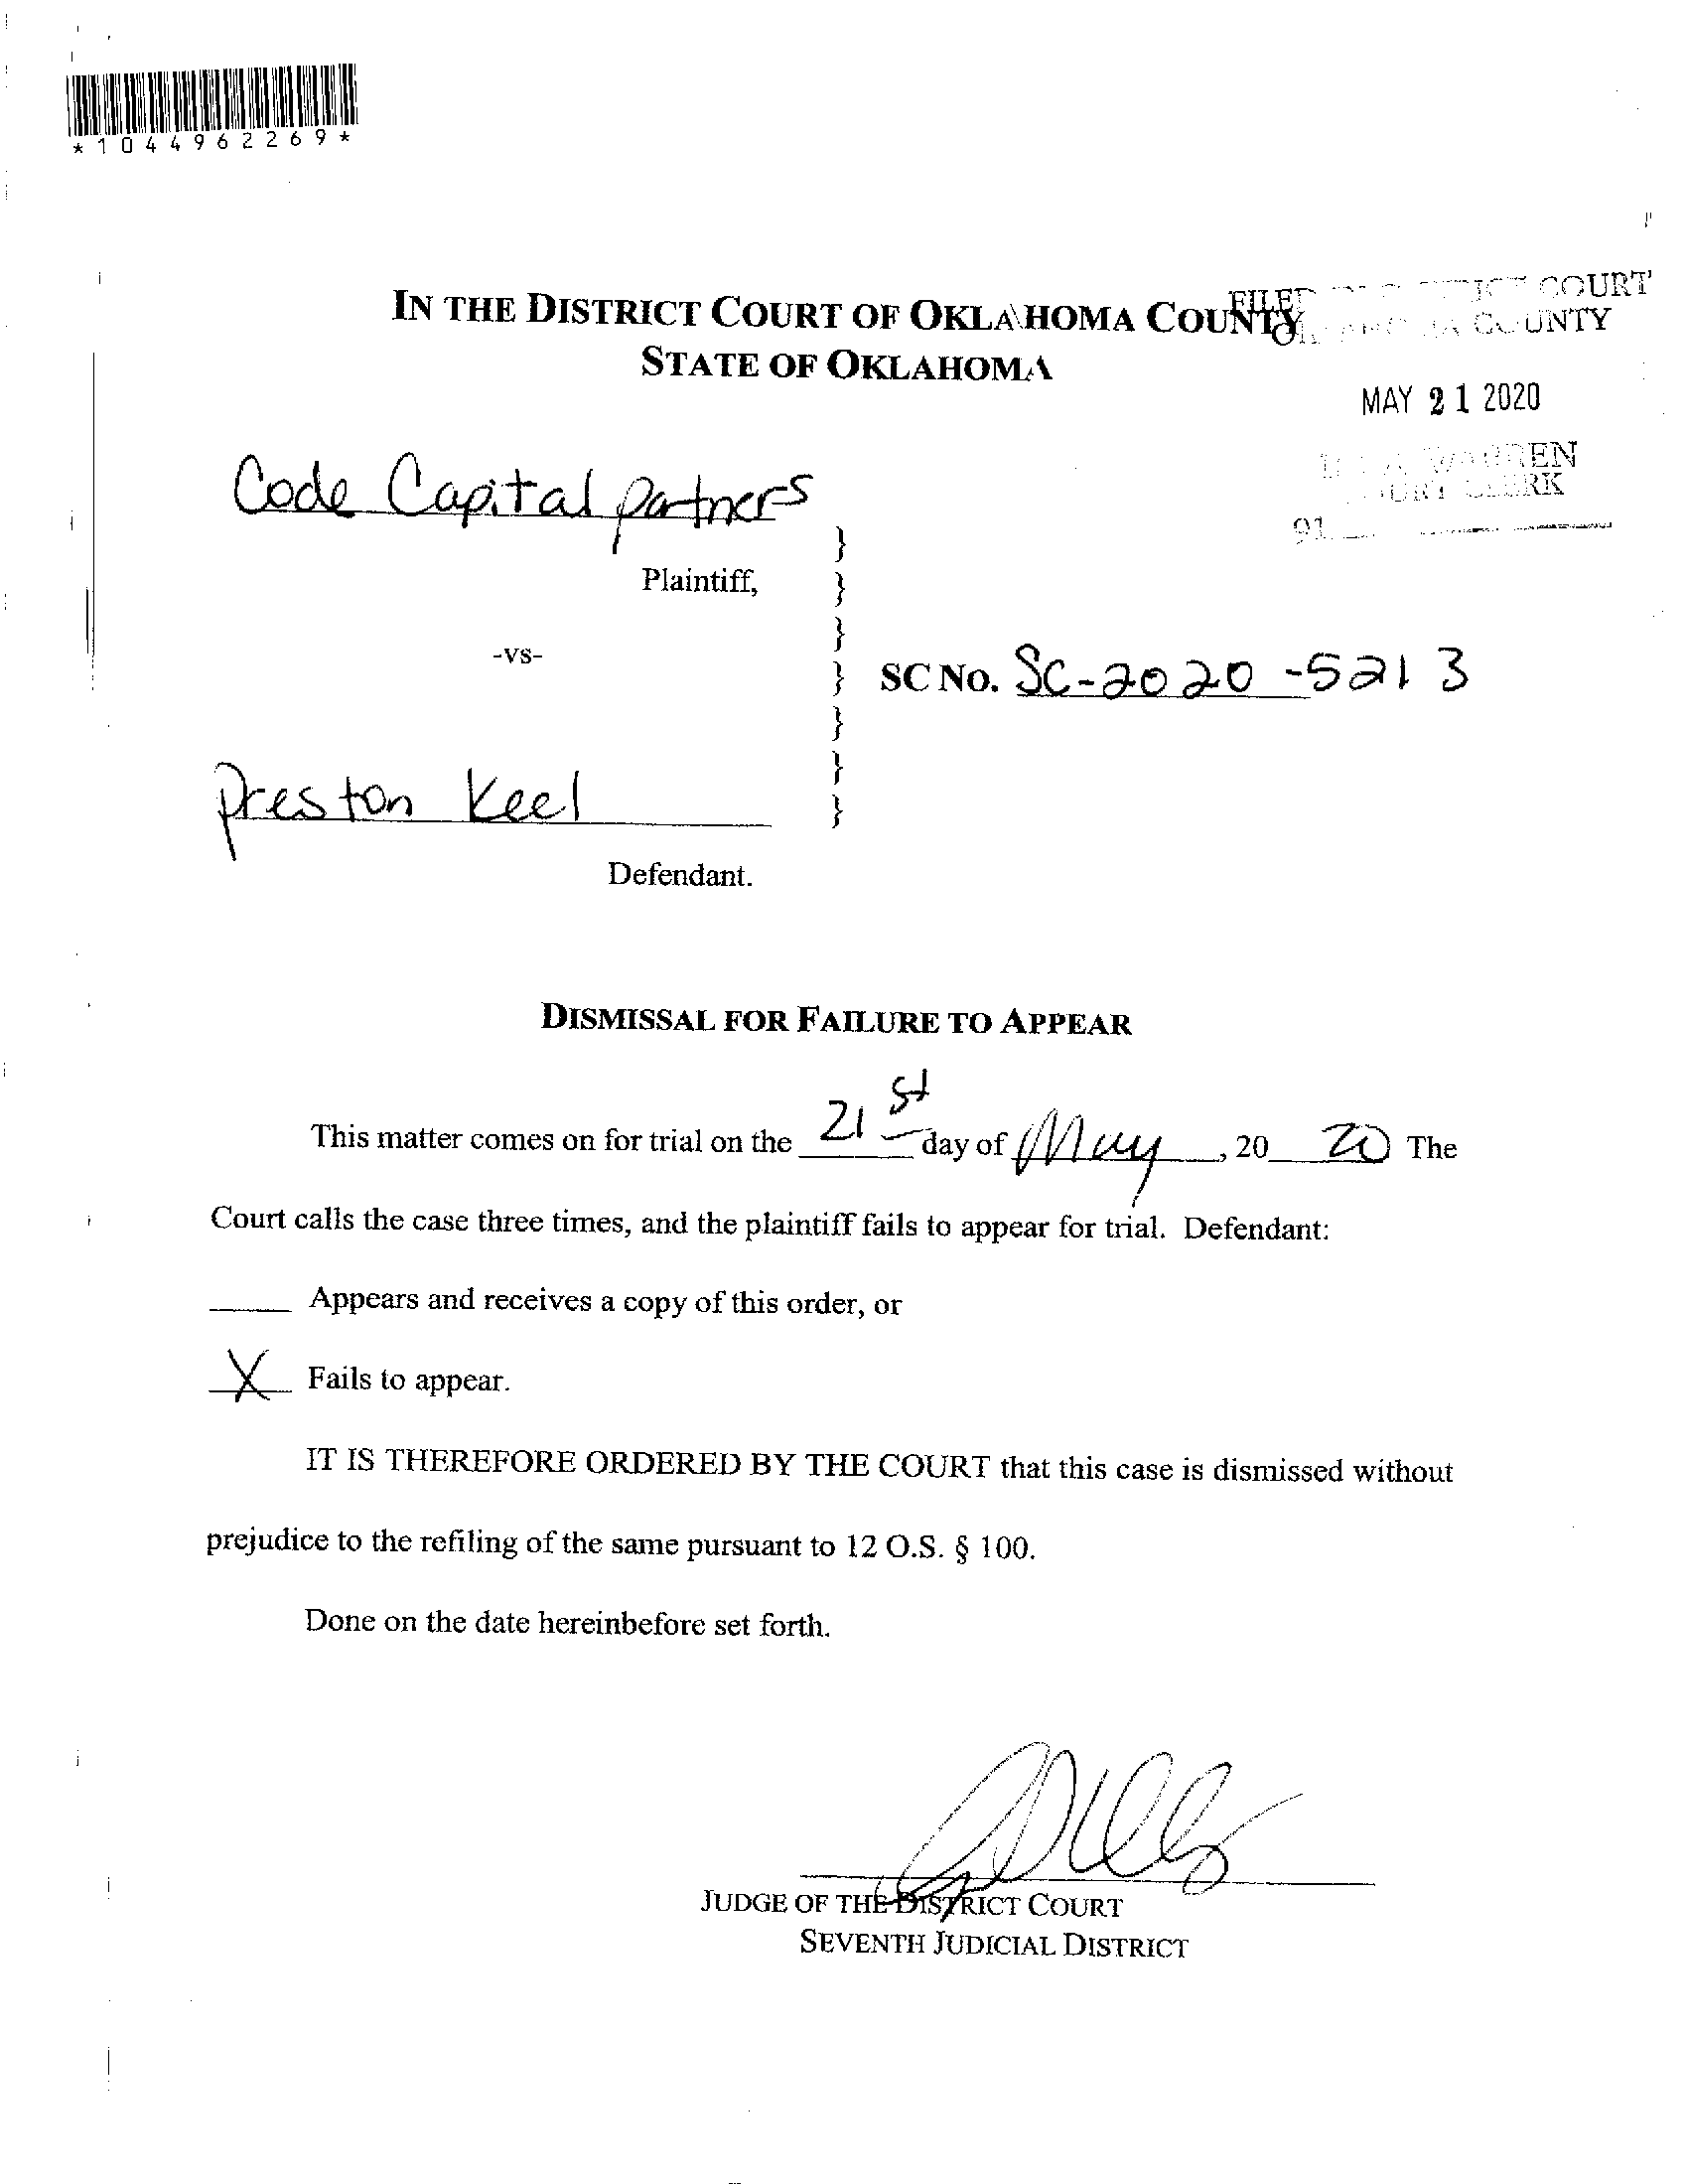 *1044962269*
IN THE DISTRICT COURT OF OKLAHOMA COUNTY
STATE OF OKLAHOMA
FILED COURT
COUNTY
MAY 21 2020
WARREN
COURT CLERK
91
Code Capital partners
}
Plaintiff, }
}
-vs-
} SC NO. SC-2020-5213
}
}
preston Keel }
Defendant.
DISMISSAL FOR FAILURE TO APPEAR
This matter comes on for trial on the 21st day of May, 2020 The
Court calls the case three times, and the plaintiff fails to appear for trial. Defendant:
____ Appears and receives a copy of this order, or
X Fails to appear.
IT IS THEREFORE ORDERED BY THE COURT that this case is dismissed without
prejudice to the refiling of the same pursuant to 12 O.S. § 100.
Done on the date hereinbefore set forth.
JUDGE OF THE DISTRICT COURT
SEVENTH JUDICIAL DISTRICT